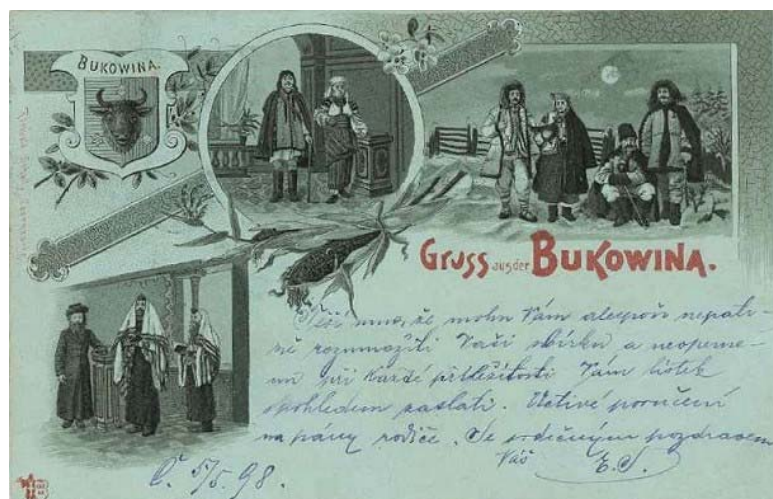 BUKOWINA.
Gruss aus der BUKOWINA.
Těší mne, že mohu Vám alespoň nepatr-
ně rozmnožiti Vaši sbírku a neopome-
nu při každé příležitosti Vám lístek
s pohledem zaslati. Uctivé poručení
na pány rodiče. Se srdečným pozdravem
Váš E.S.
Č. 5/5. 98.